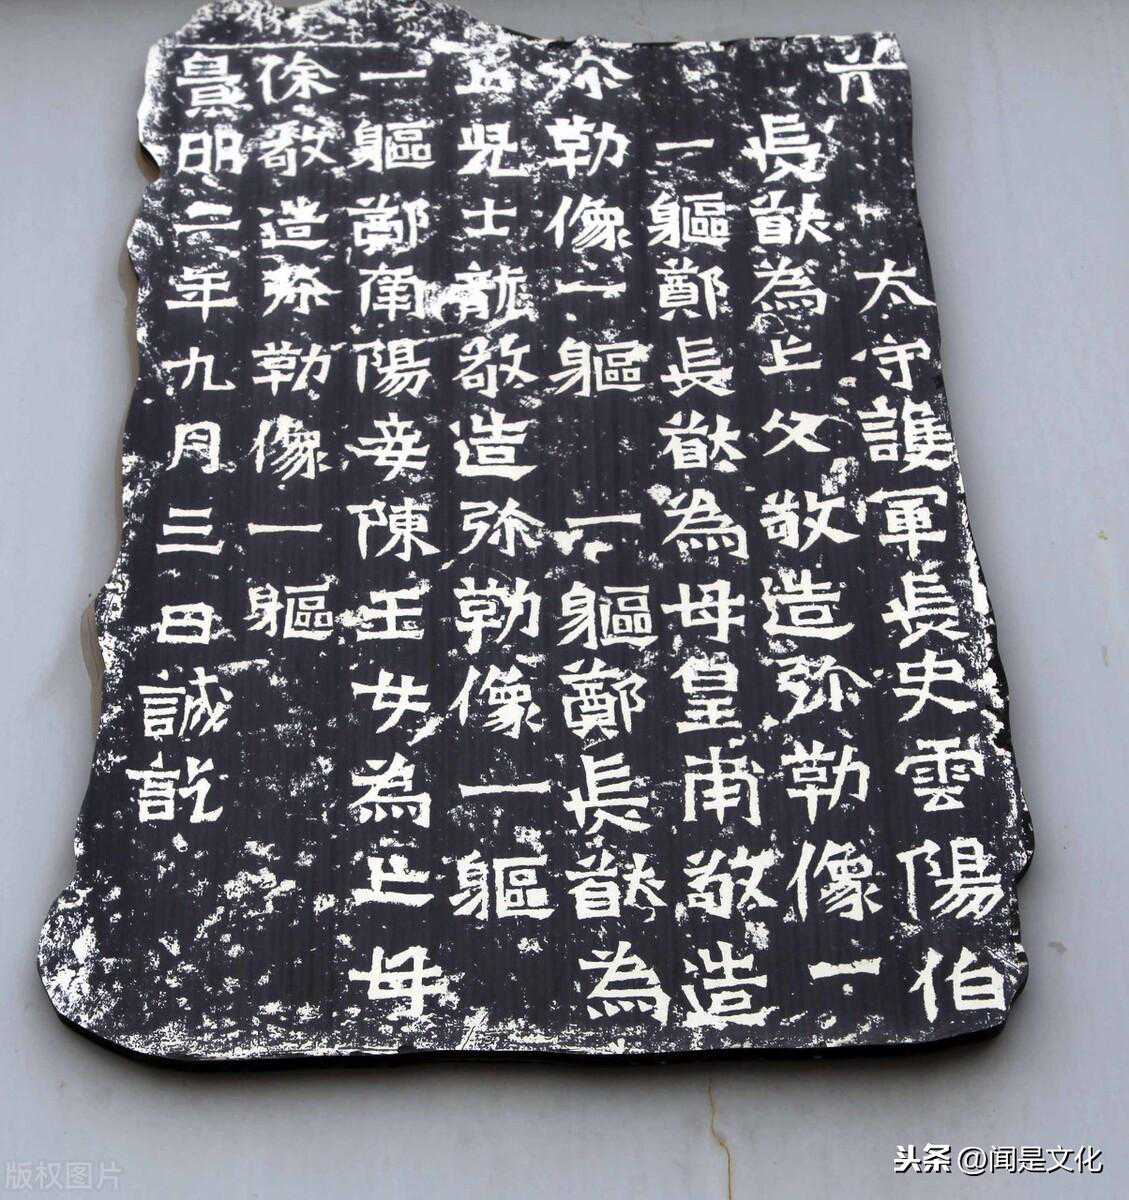 太守護軍長史雲陽伯
長猷為亡父敬造弥勒像一
一軀鄭長猷為母皇甫敬造
弥勒像一軀一軀鄭長猷為
亡児士龍敬造弥勒像一軀
一軀鄭南陽妾陳玉女為亡母
徐敬造弥勒像一軀
景明二年九月三日誡訖
版权图片
头条 @闻是文化